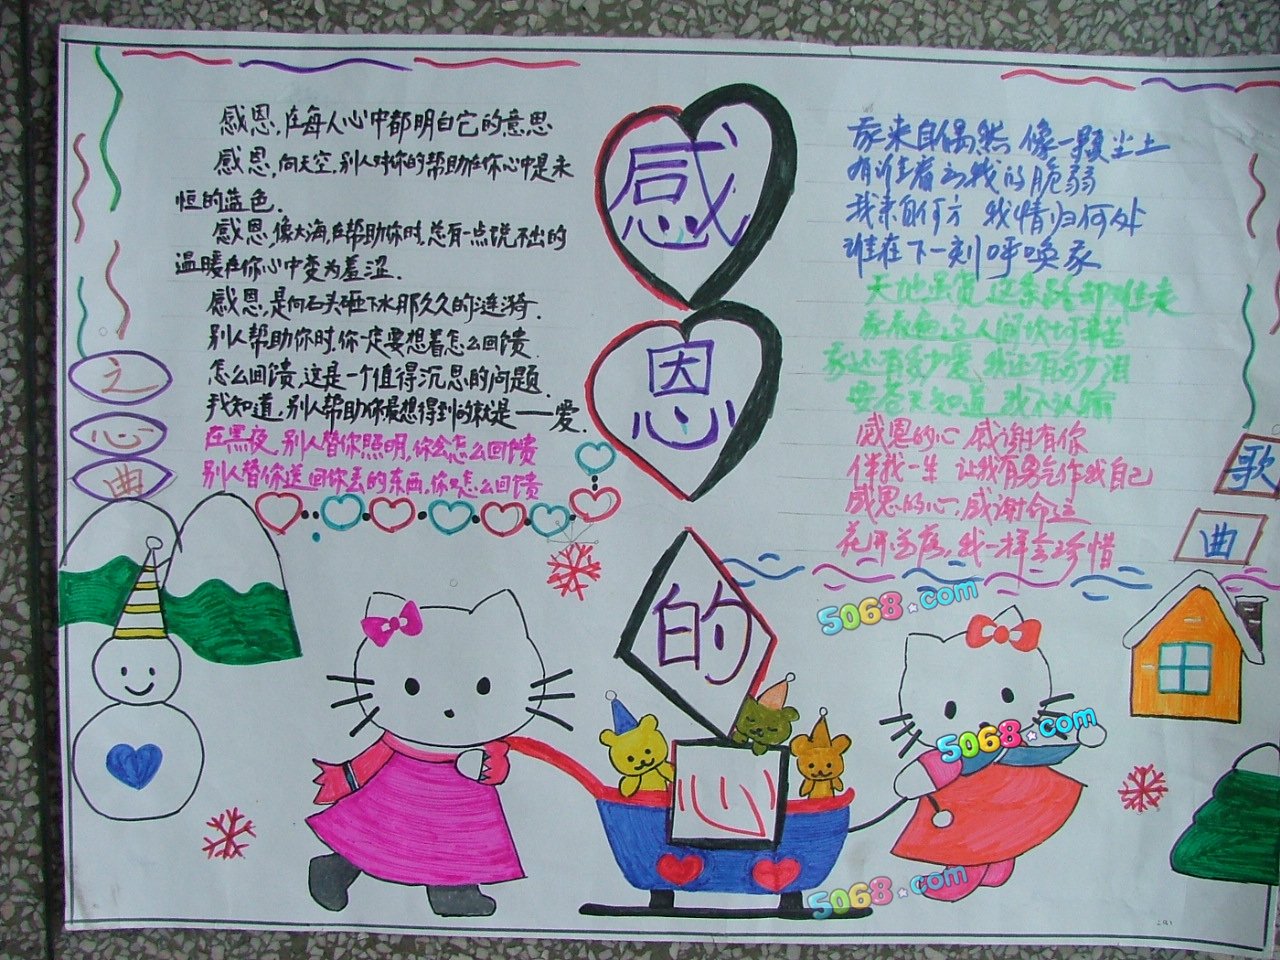 之
心
曲
感恩,在每人心中都明白它的意思
感恩,向天空,别人对你的帮助在你心中是永
恒的蓝色.
感恩,像大海,在帮助你时,总有一点说不出的
温暖在你心中变为羞涩.
感恩,是向石头砸下水那久久的涟漪.
别人帮助你时,你一定要想着怎么回馈.
怎么回馈,这是一个值得沉思的问题.
我知道,别人帮助你最想得到的就是——爱.
在黑夜,别人替你照明,你会怎么回馈
别人替你送回你丢的东西,你又怎么回馈
感
恩
的
心
我来自偶然 像一颗尘土
有谁看出我的脆弱
我来自何方 我情归何处
谁在下一刻呼唤我
天地虽宽 这条路却难走
我看遍这人间坎坷辛苦
我还有多少爱 我还有多少泪
要苍天知道 我不认输
感恩的心 感谢有你
伴我一生 让我有勇气作我自己
感恩的心,感谢命运
花开花落,我一样会珍惜
歌
曲
5068.com
5068.com
5068.com